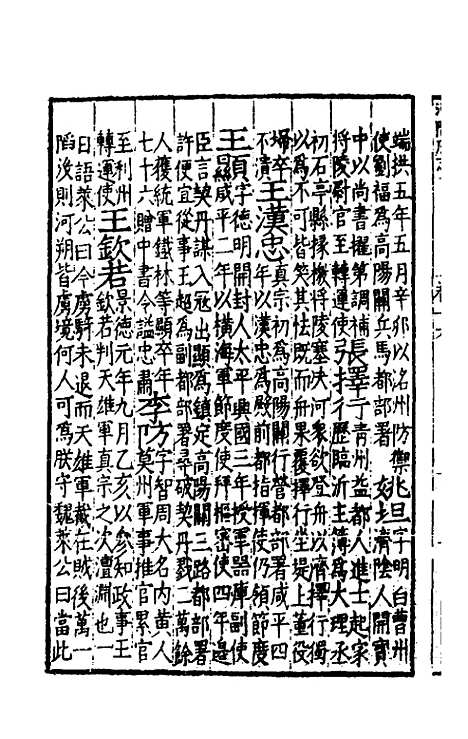 端拱五年五月辛卯以洺州防禦
使劉福為高陽關兵馬都部署　姚坦字明白曹州
濟陰人開寶
中以尚書擢第調補
將陵尉官至轉運使張擇行青州益都人進士起家
歷臨沂主簿為大理丞
初石亭縣掾檄將陵塞决河衆欲登舟以濟擇行獨
以為不可皆笑其怯既而舟果覆擇行坐堤上董役
埽卒　王漢忠真宗初為高陽關行營都部署咸平四
不潰　年以漢忠為殿前都指揮使仍領節度
王顯字德明開封人太平興國三年授軍器庫副使
咸平二年以橫海軍節度使拜樞密使四年邊
臣言契丹謀入冦出顯為鎮定高陽關三路都部署
許便宜從事王超為副都部署尋破契丹戮二萬餘
人獲統軍鐵林等顯卒年
七十六贈中書令謚忠肅　李防字智周大名内黄人
莫州軍事推官累官
至利州
轉運使　王欽若景德元年九月乙亥以參知政事王
欽若判天雄軍真宗之次澶淵也一
日語萊公曰今虜騎未退而天雄軍截在賊後萬一
䧟没則河朔皆虜境何人可為朕守魏萊公曰當此